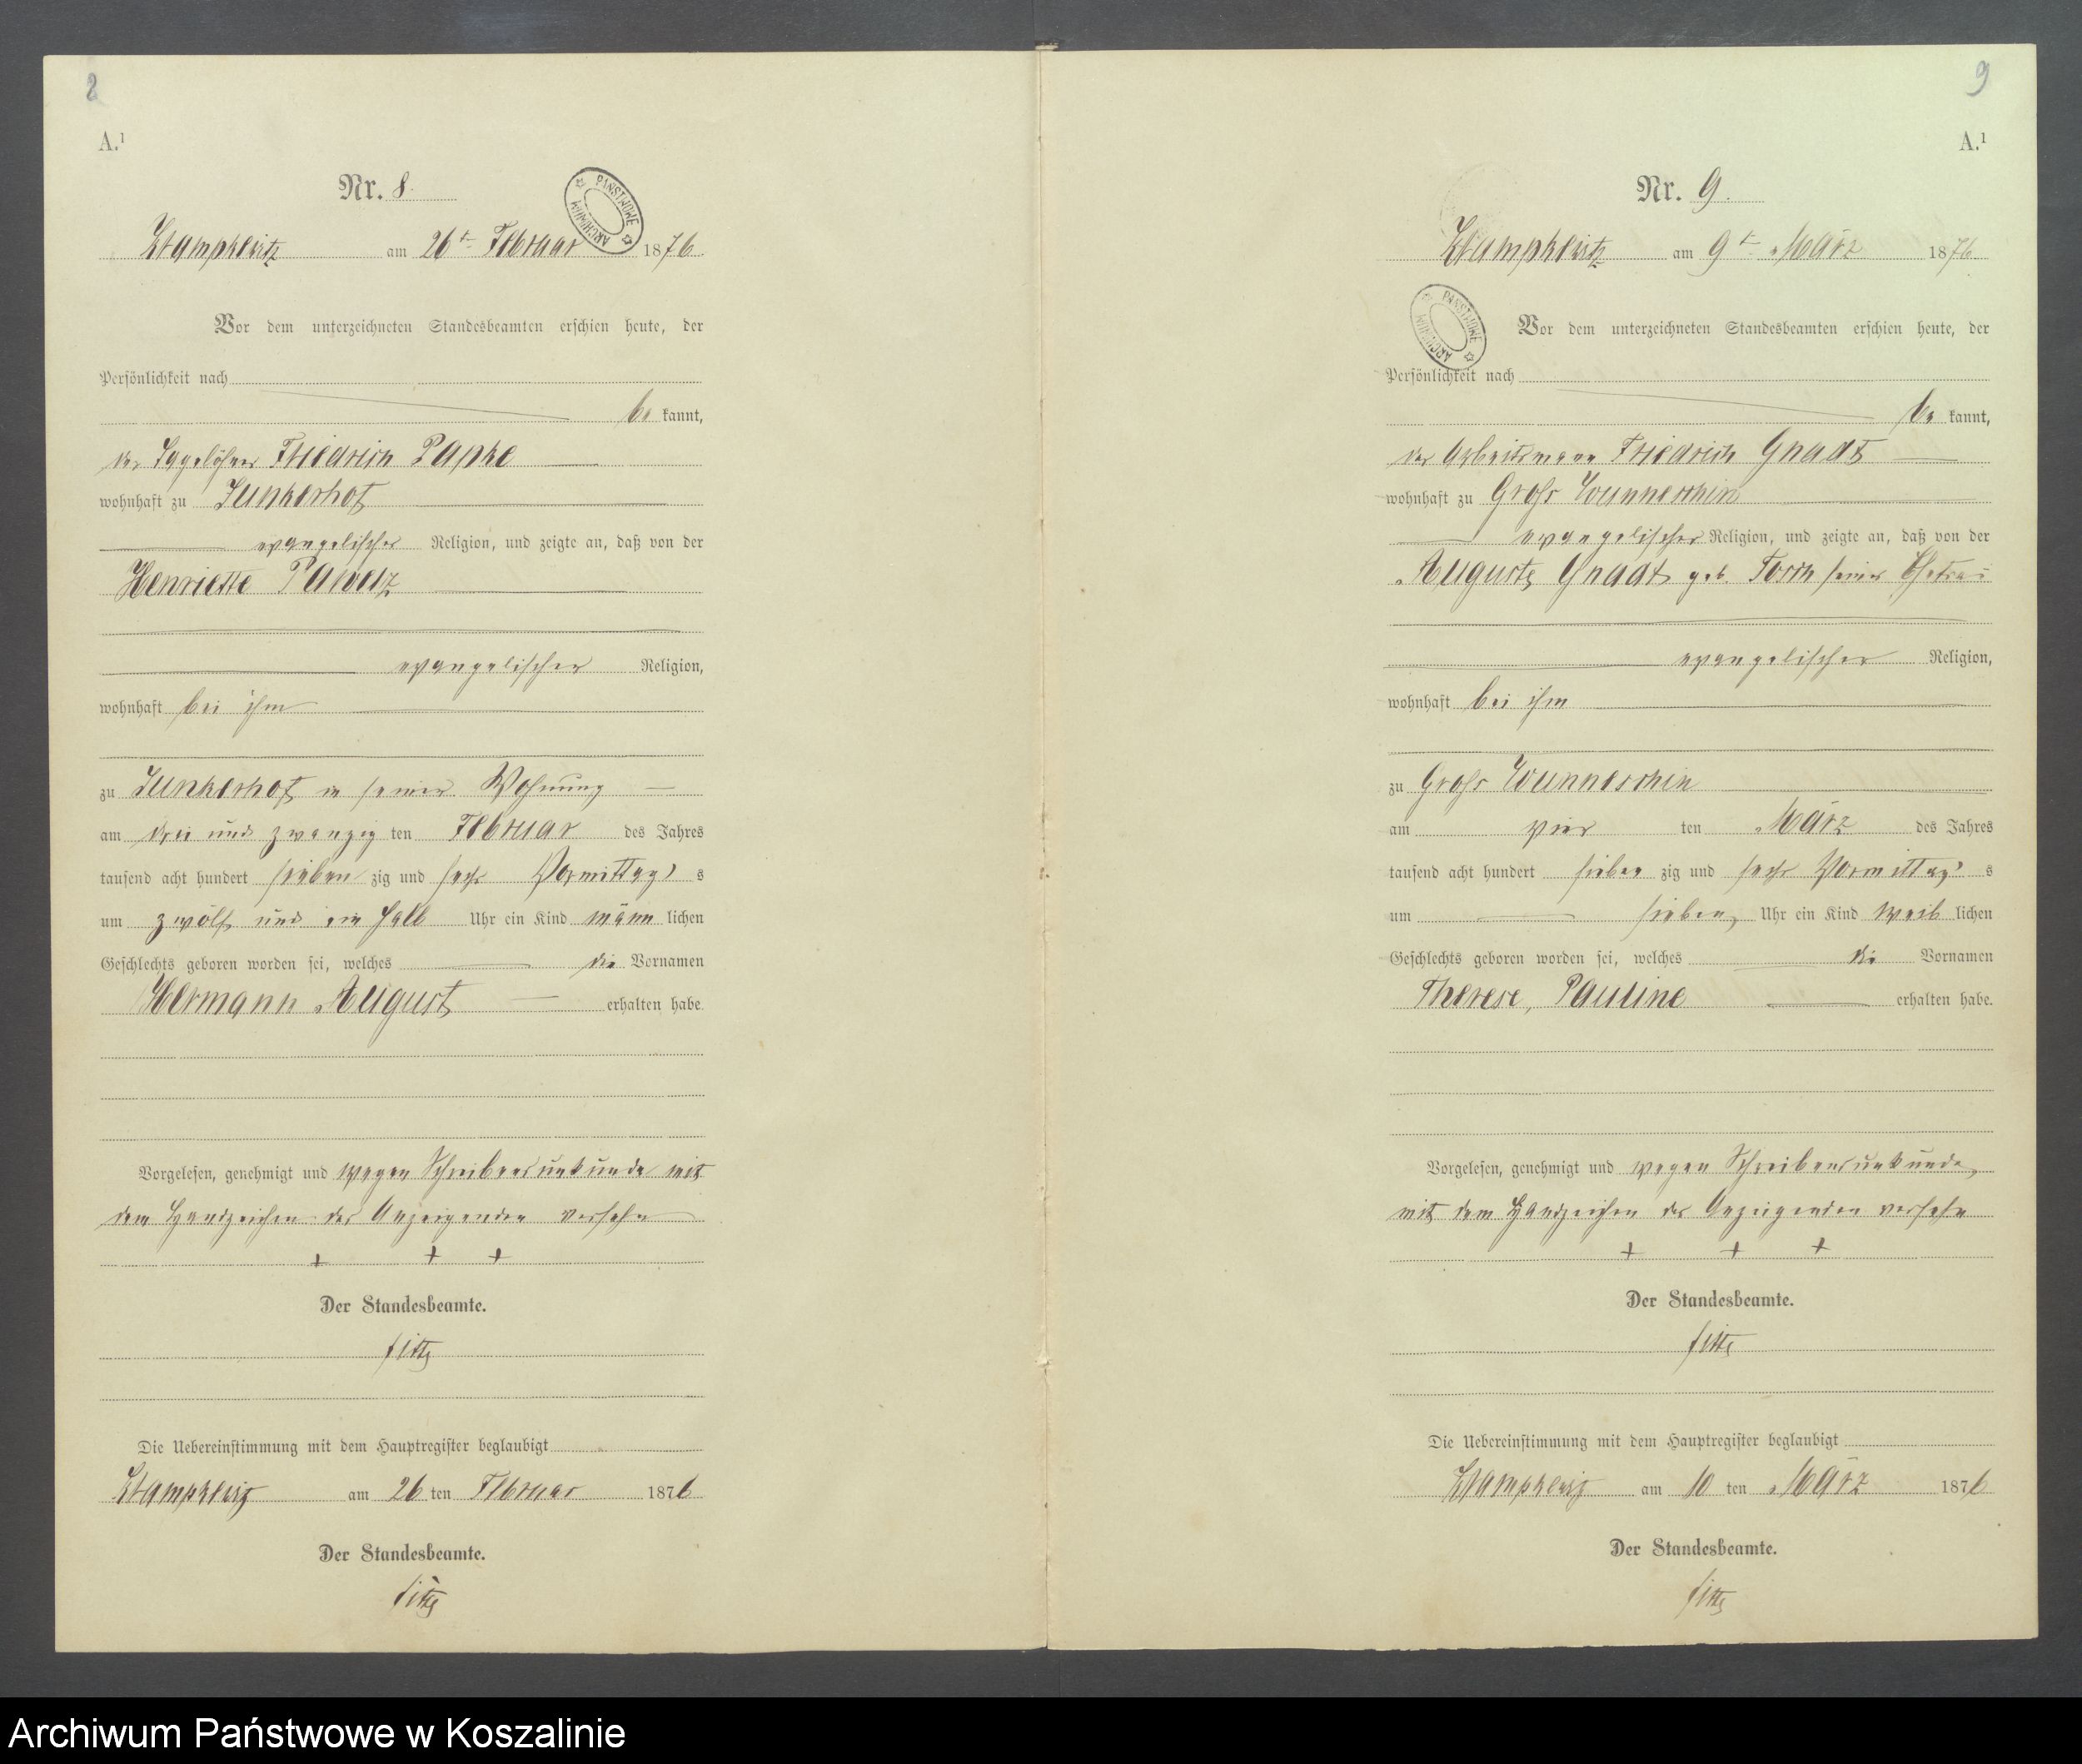 8
A.¹
Nr. 8.
PAŃSTWOWE ARCHIWUM
am 26t. Februar 1876.
Vor dem unterzeichneten Standesbeamten erschien heute, der
Persönlichkeit nach
be kannt,
der Tagelöhner Friedrich Papke
wohnhaft zu Junkerhof
evangelischer Religion, und zeigte an, daß von der
Henriette
evangelischer Religion,
wohnhaft bei ihm
zu Junkerhof in seiner Wohnung
am drei und zwanzig ten Februar des Jahres
tausend acht hundert sieben zig und sechs Vormittags s
um zwölf und ein halb Uhr ein Kind männ lichen
Geschlechts geboren worden sei, welches die Vornamen
Hermann August erhalten habe.
Vorgelesen, genehmigt und wegen Schreibensunkunde mit
dem Handzeichen des Anzeigenden versehn
+ + +
Der Standesbeamte.
Die Uebereinstimmung mit dem Hauptregister beglaubigt
am 26 ten Februar 1876
Der Standesbeamte.
9
A.¹
Nr. 9.
am 9t. März 1876.
PAŃSTWOWE ARCHIWUM
Vor dem unterzeichneten Standesbeamten erschien heute, der
Persönlichkeit nach
be kannt,
der Arbeitsmann Friedrich Gnadt
wohnhaft zu Groß Wunneschin
evangelischer Religion, und zeigte an, daß von der
Auguste Gnadt geb. seiner Ehefrau
evangelischer Religion,
wohnhaft bei ihm
zu Groß Wunneschin
am vier ten März des Jahres
tausend acht hundert sieben zig und sechs Vormittags s
um sieben Uhr ein Kind weib lichen
Geschlechts geboren worden sei, welches die Vornamen
Therese, Pauline erhalten habe.
Vorgelesen, genehmigt und wegen Schreibensunkunde,
mit dem Handzeichen des Anzeigenden versehn
+ + +
Der Standesbeamte.
Die Uebereinstimmung mit dem Hauptregister beglaubigt
am 10 ten März 1876
Der Standesbeamte.
Archiwum Państwowe w Koszalinie